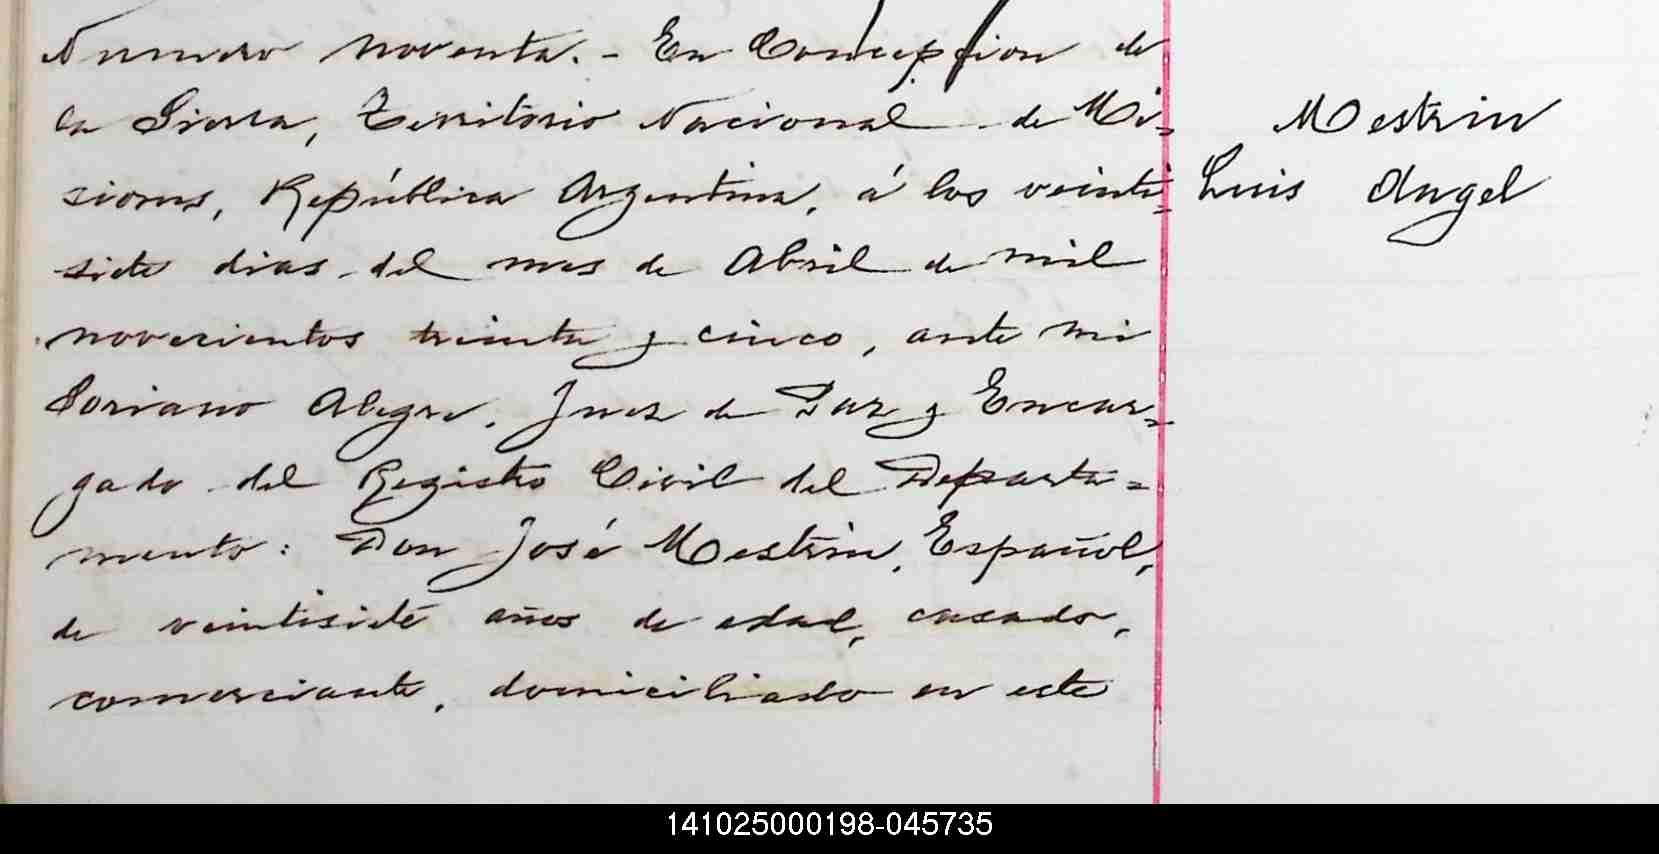 Numero noventa. - En Concepcion de
la Sierra, Territorio Nacional de Mi=
siones, República Argentina, á los veinti=
siete dias del mes de Abril de mil
novecientos treinta y cinco, ante mi
Soriano Alegre, Juez de Paz y Encar=
gado del Registro Civil del Departa=
mento: Don José Mestrin, Español,
de veintisiete años de edad, casado,
comerciante, domiciliado en este
Mestrin
Luis Angel
141025000198-045735